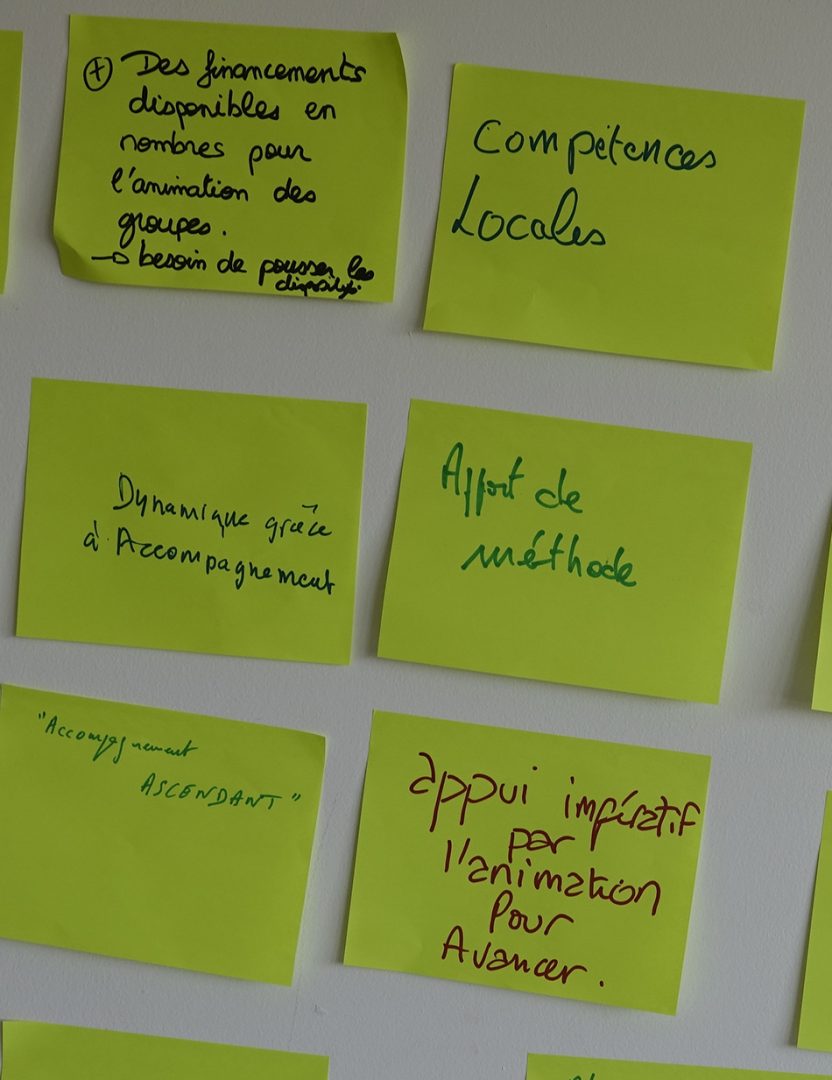 + Des financements
disponibles en
nombres pour
l'animation des
groupes.
→ besoin de pousser les
dispositifs
Compétences
Locales
Dynamique grâce
à Accompagnement
Apport de
méthode
"Accompagnement
ASCENDANT"
appui impératif
par
l'animation
Pour
Avancer.